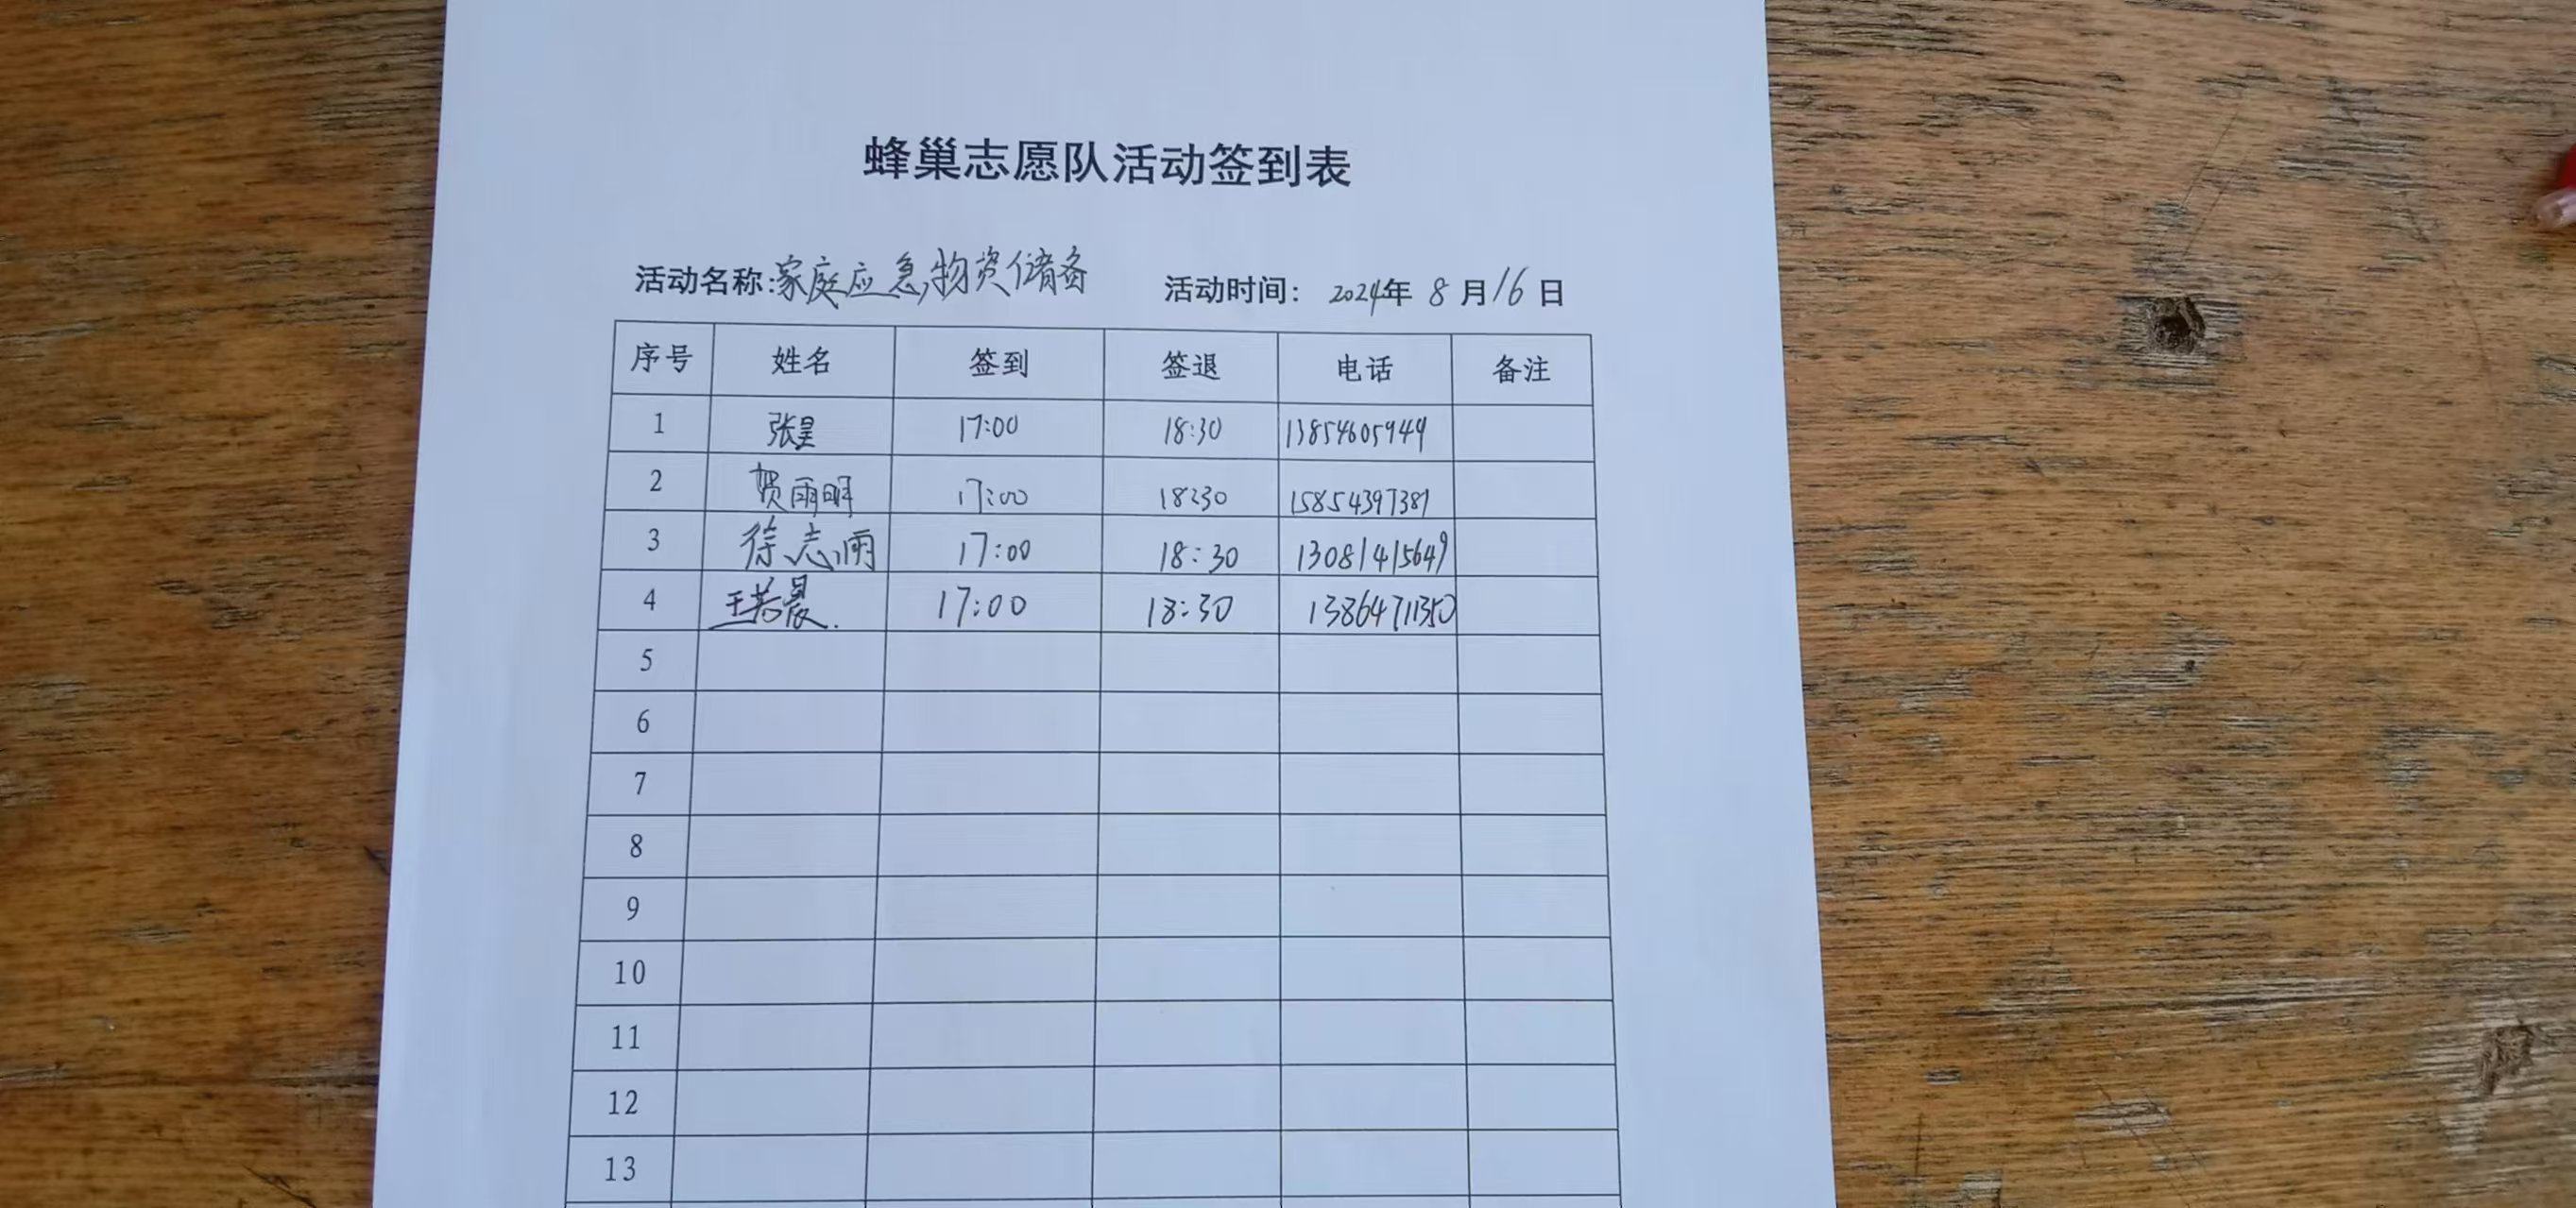 蜂巢志愿队活动签到表
活动名称:家庭应急物资储备 活动时间: 2024年 8 月 16 日
序号 姓名 签到 签退 电话 备注
1 张昱 17:00 18:30 13854605944
2 贺雨明 17:00 18:30 15854397381
3 徐志雨 17:00 18:30 13081415649
4 王若晨. 17:00 18:30 13864711350
5
6
7
8
9
10
11
12
13